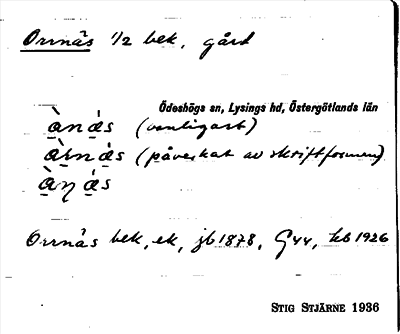 Orrnäs 1/2 bek, gård
Ödeshögs sn, Lysings hd, Östergötlands län
ànás (vanligast)
àrnás (påverkat av skriftformen)
àŋás
Orrnäs bek, ek, jb 1878, G 44, kb 1926
STIG STJÄRNE 1936